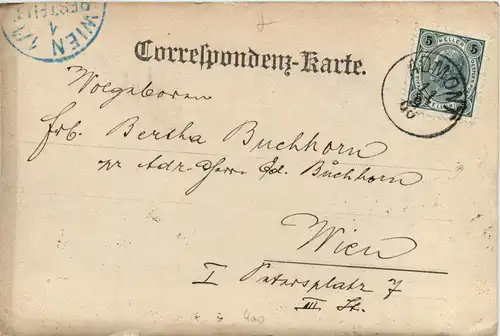 WIEN 1/1
BESTELLT
1
Correspondenz-Karte.
5 HELLER 5
ADMONT
Wolgeboren
Frl. Bertha Buchhorn
pr Adr. Herrn Ed. Buchhorn
Wien
I Petersplatz 7
III St.